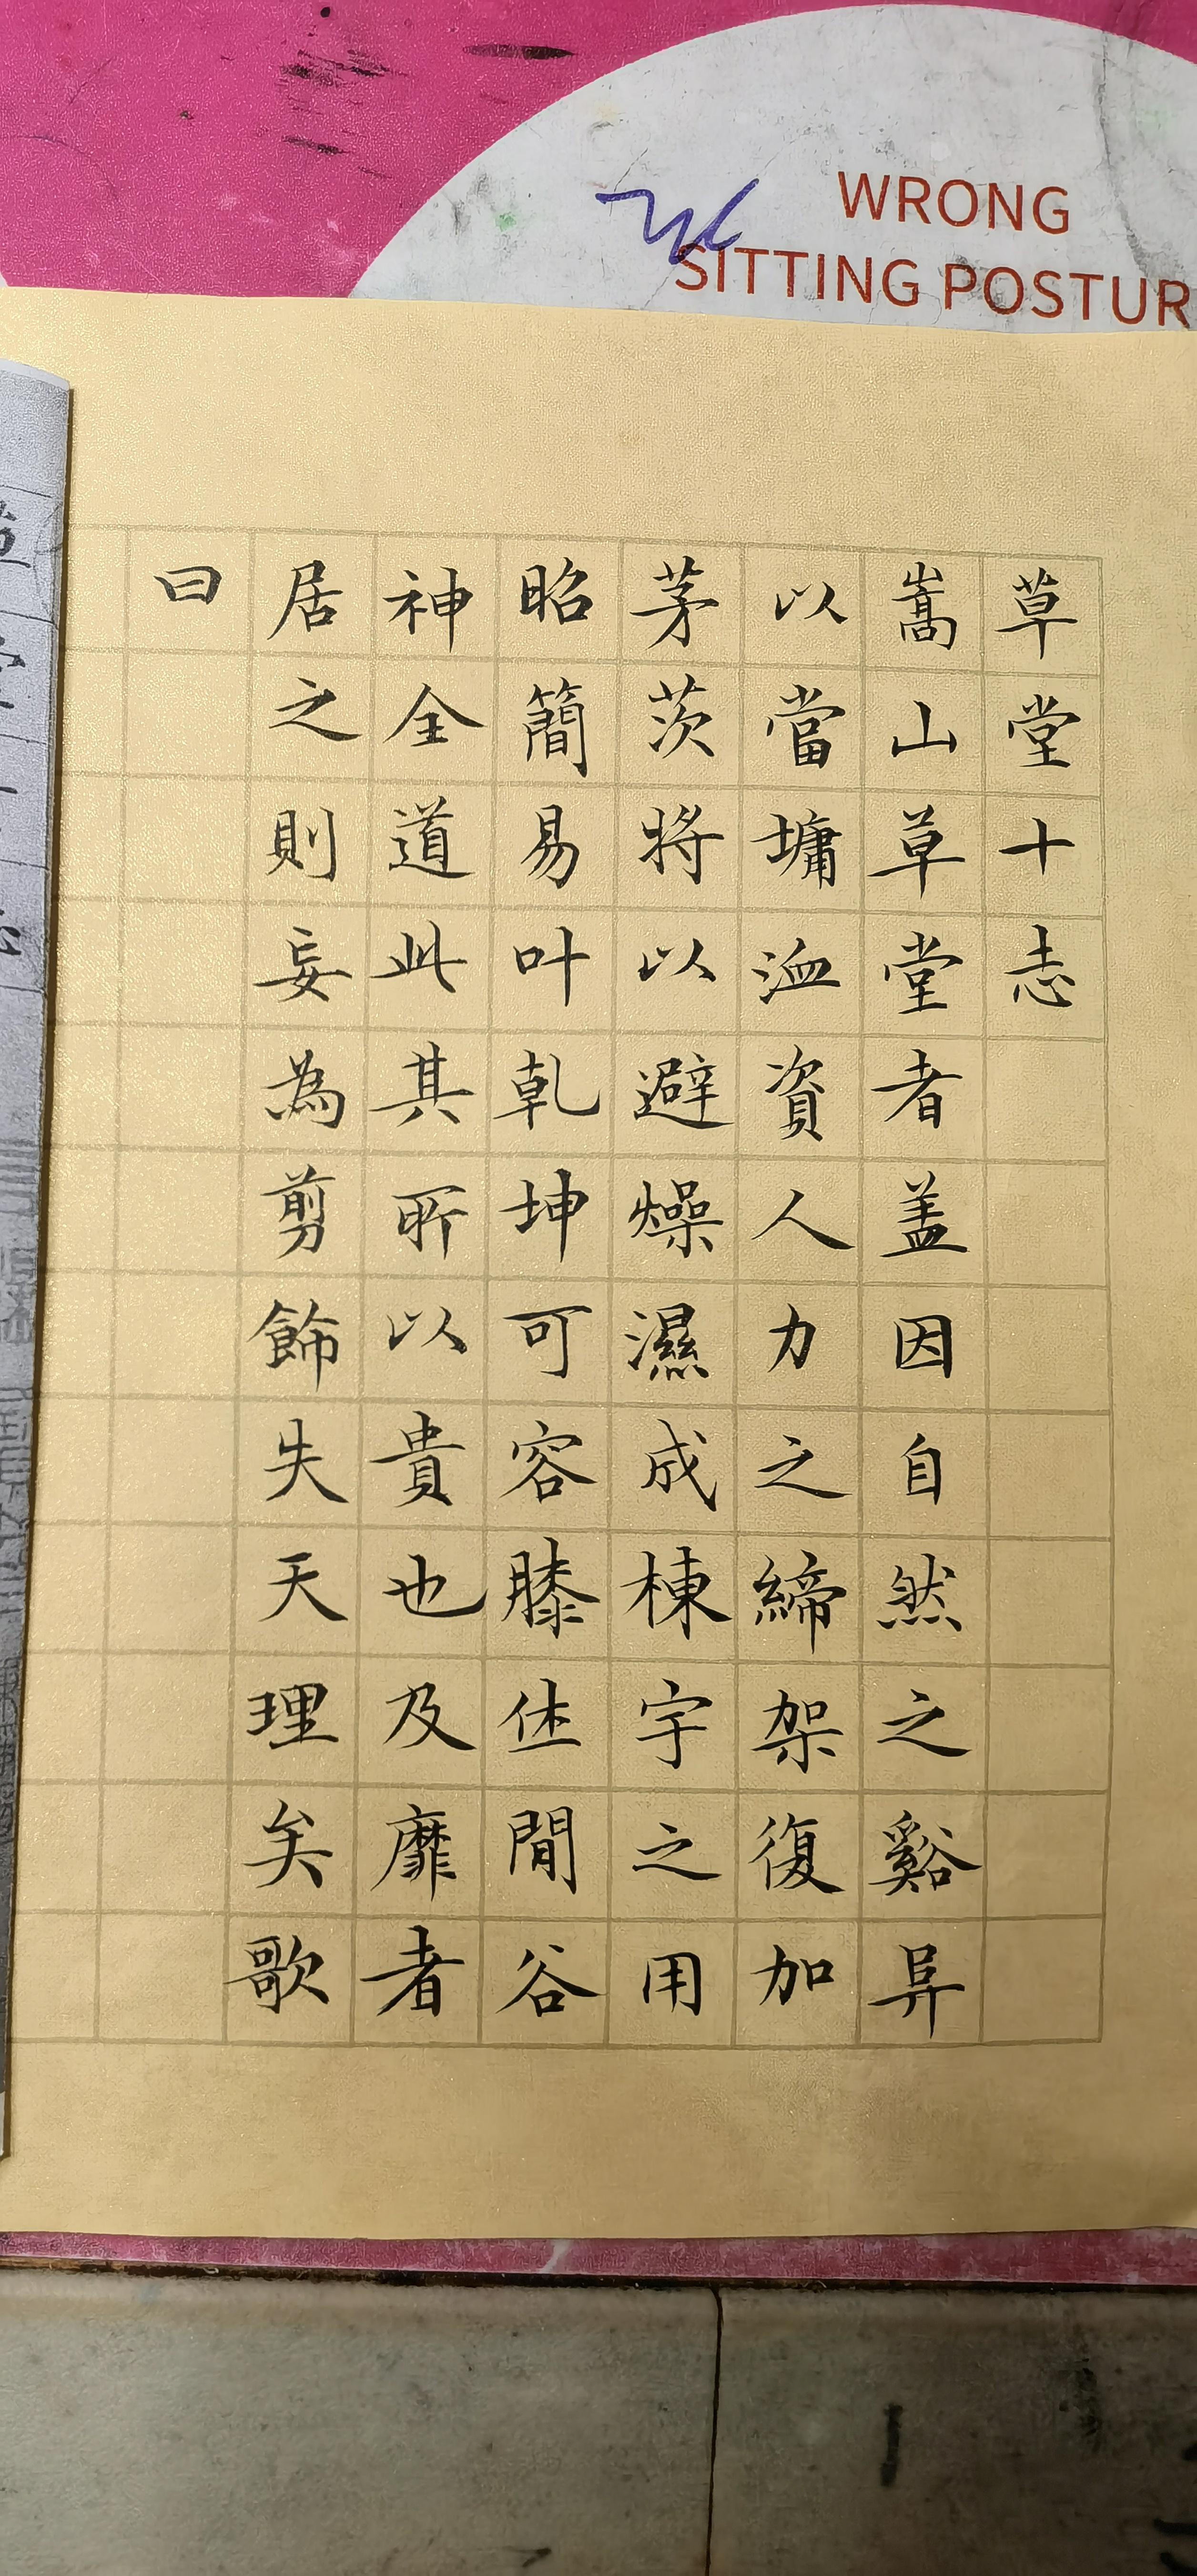 WRONG
SITTING POSTUR
草堂十志
嵩山草堂者盖因自然之谿阜
以當墉洫資人力之締架復加
茅茨将以避燥濕成棟宇之用
昭簡易叶乾坤可容膝休閒谷
神全道此其所以貴也及靡者
居之則妄為剪飾失天理矣歌
曰